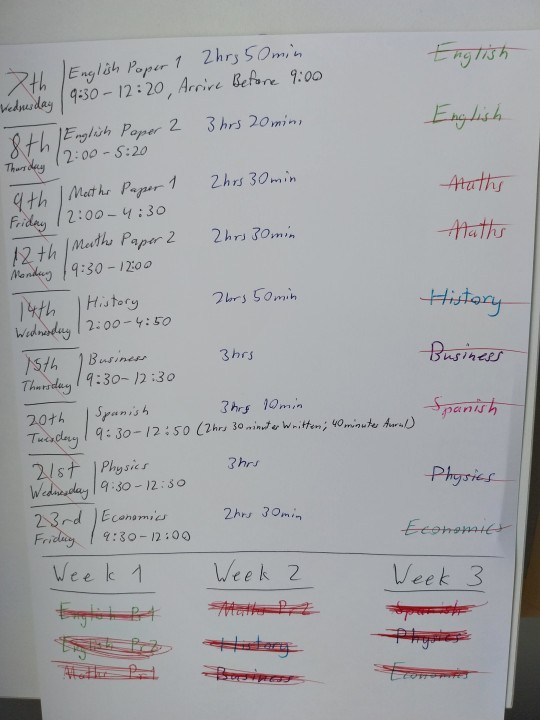 7th English Paper 1 2hrs 50min English
Wednesday 9:30-12:20, Arrive Before 9:00
8th English Paper 2 3hrs 20min, English
Thursday 2:00-5:20
9th Maths Paper 1 2hrs 30min Maths
Friday 2:00-4:30
12th Maths Paper 2 2hrs 30min Maths
Monday 9:30-12:00
14th History 2hrs 50min History
Wednesday 2:00-4:50
15th Business 3hrs Business
Thursday 9:30-12:30
20th Spanish 3hrs 10min Spanish
Tuesday 9:30-12:50 (2hrs 30 minutes Written; 40minutes Aural)
21st Physics 3hrs Physics
Wednesday 9:30-12:30
23rd Economics 2hrs 30min Economics
Friday 9:30-12:00
Week 1 Week 2 Week 3
English Pr1 Maths Pr2 Spanish
English Pr2 History Physics
Maths Pr1 Business Economics